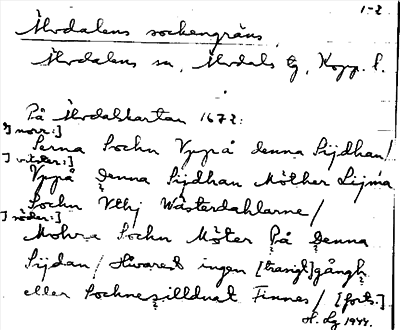 1-2
Älvdalens sockengräns
Älvdalens sn, Älvdals tg, Kopp. l.
På Älvdalskartan 1672:
[I norr:]
Serna Sochn Vppå denna Sijdhan/
[I väster:]
Vppå Denna Sijdhan Möther Lijma
Sochn Vthj Wästerdahlarne/
[I söder:]
Mohra Sochn Möter På Denna
Sijdan/ Hwarest ingen [trasigt] gångh
eller Sochne zilldnat Finnes/ [forts.]
H. Lg 1944.